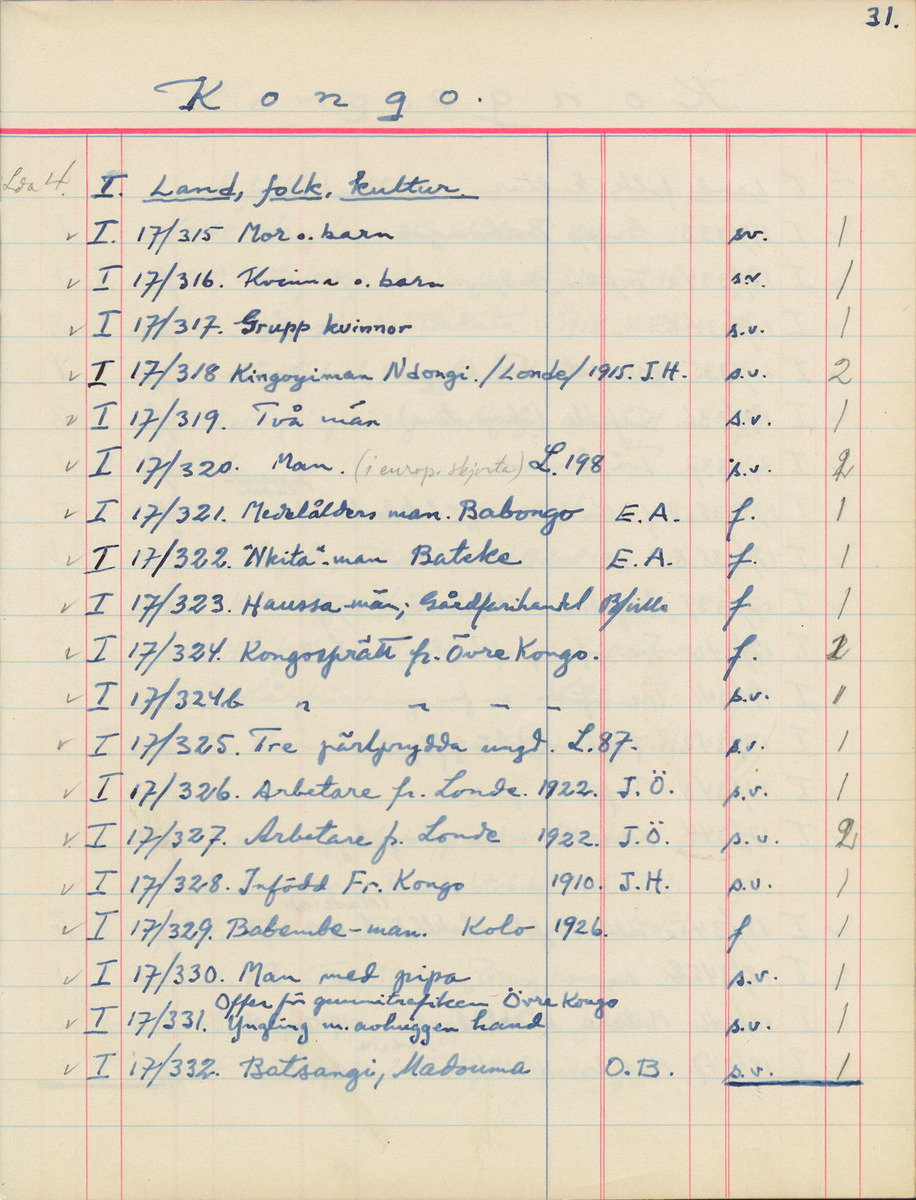 31.
Kongo.
Lda 4. I. Land, folk, kultur.
✓ I. 17/315 Mor o. barn sv. 1
✓ I 17/316. Kvinna o. barn s.v. 1
✓ I 17/317. Grupp kvinnor s.v. 1
✓ I 17/318 Kingoyiman N'dongi. /Londe/ 1915. J.H. s.v. 2
✓ I 17/319. Två män s.v. 1
✓ I 17/320. Man. (i europ. skjorta) L. 198 s.v. 2
✓ I 17/321. Medelålders man. Babongo E.A. f. 1
✓ I 17/322. "Nkita"-man Bateke E.A. f. 1
✓ I 17/323. Haussa-män; Gårdfarihandl B/ville f 1
✓ I 17/324. Kongosprätt fr. Övre Kongo. f. 2
✓ I 17/324b " " " " s.v. 1
✓ I 17/325. Tre pärlprydda ungd. L.87. s.v. 1
✓ I 17/326. Arbetare fr. Londe. 1922. J.Ö. s.v. 1
✓ I 17/327. Arbetare fr. Londe 1922. J.Ö. s.v. 2
✓ I 17/328. Infödd Fr. Kongo 1910. J.H. s.v. 1
✓ I 17/329. Babembe-man. Kolo 1926. f 1
✓ I 17/330. Man med pipa s.v. 1
Offer för gummitrafiken Övre Kongo
✓ I 17/331. Yngling m. avhuggen hand s.v. 1
✓ I 17/332. Batsangi, Madouma O.B. s.v. 1